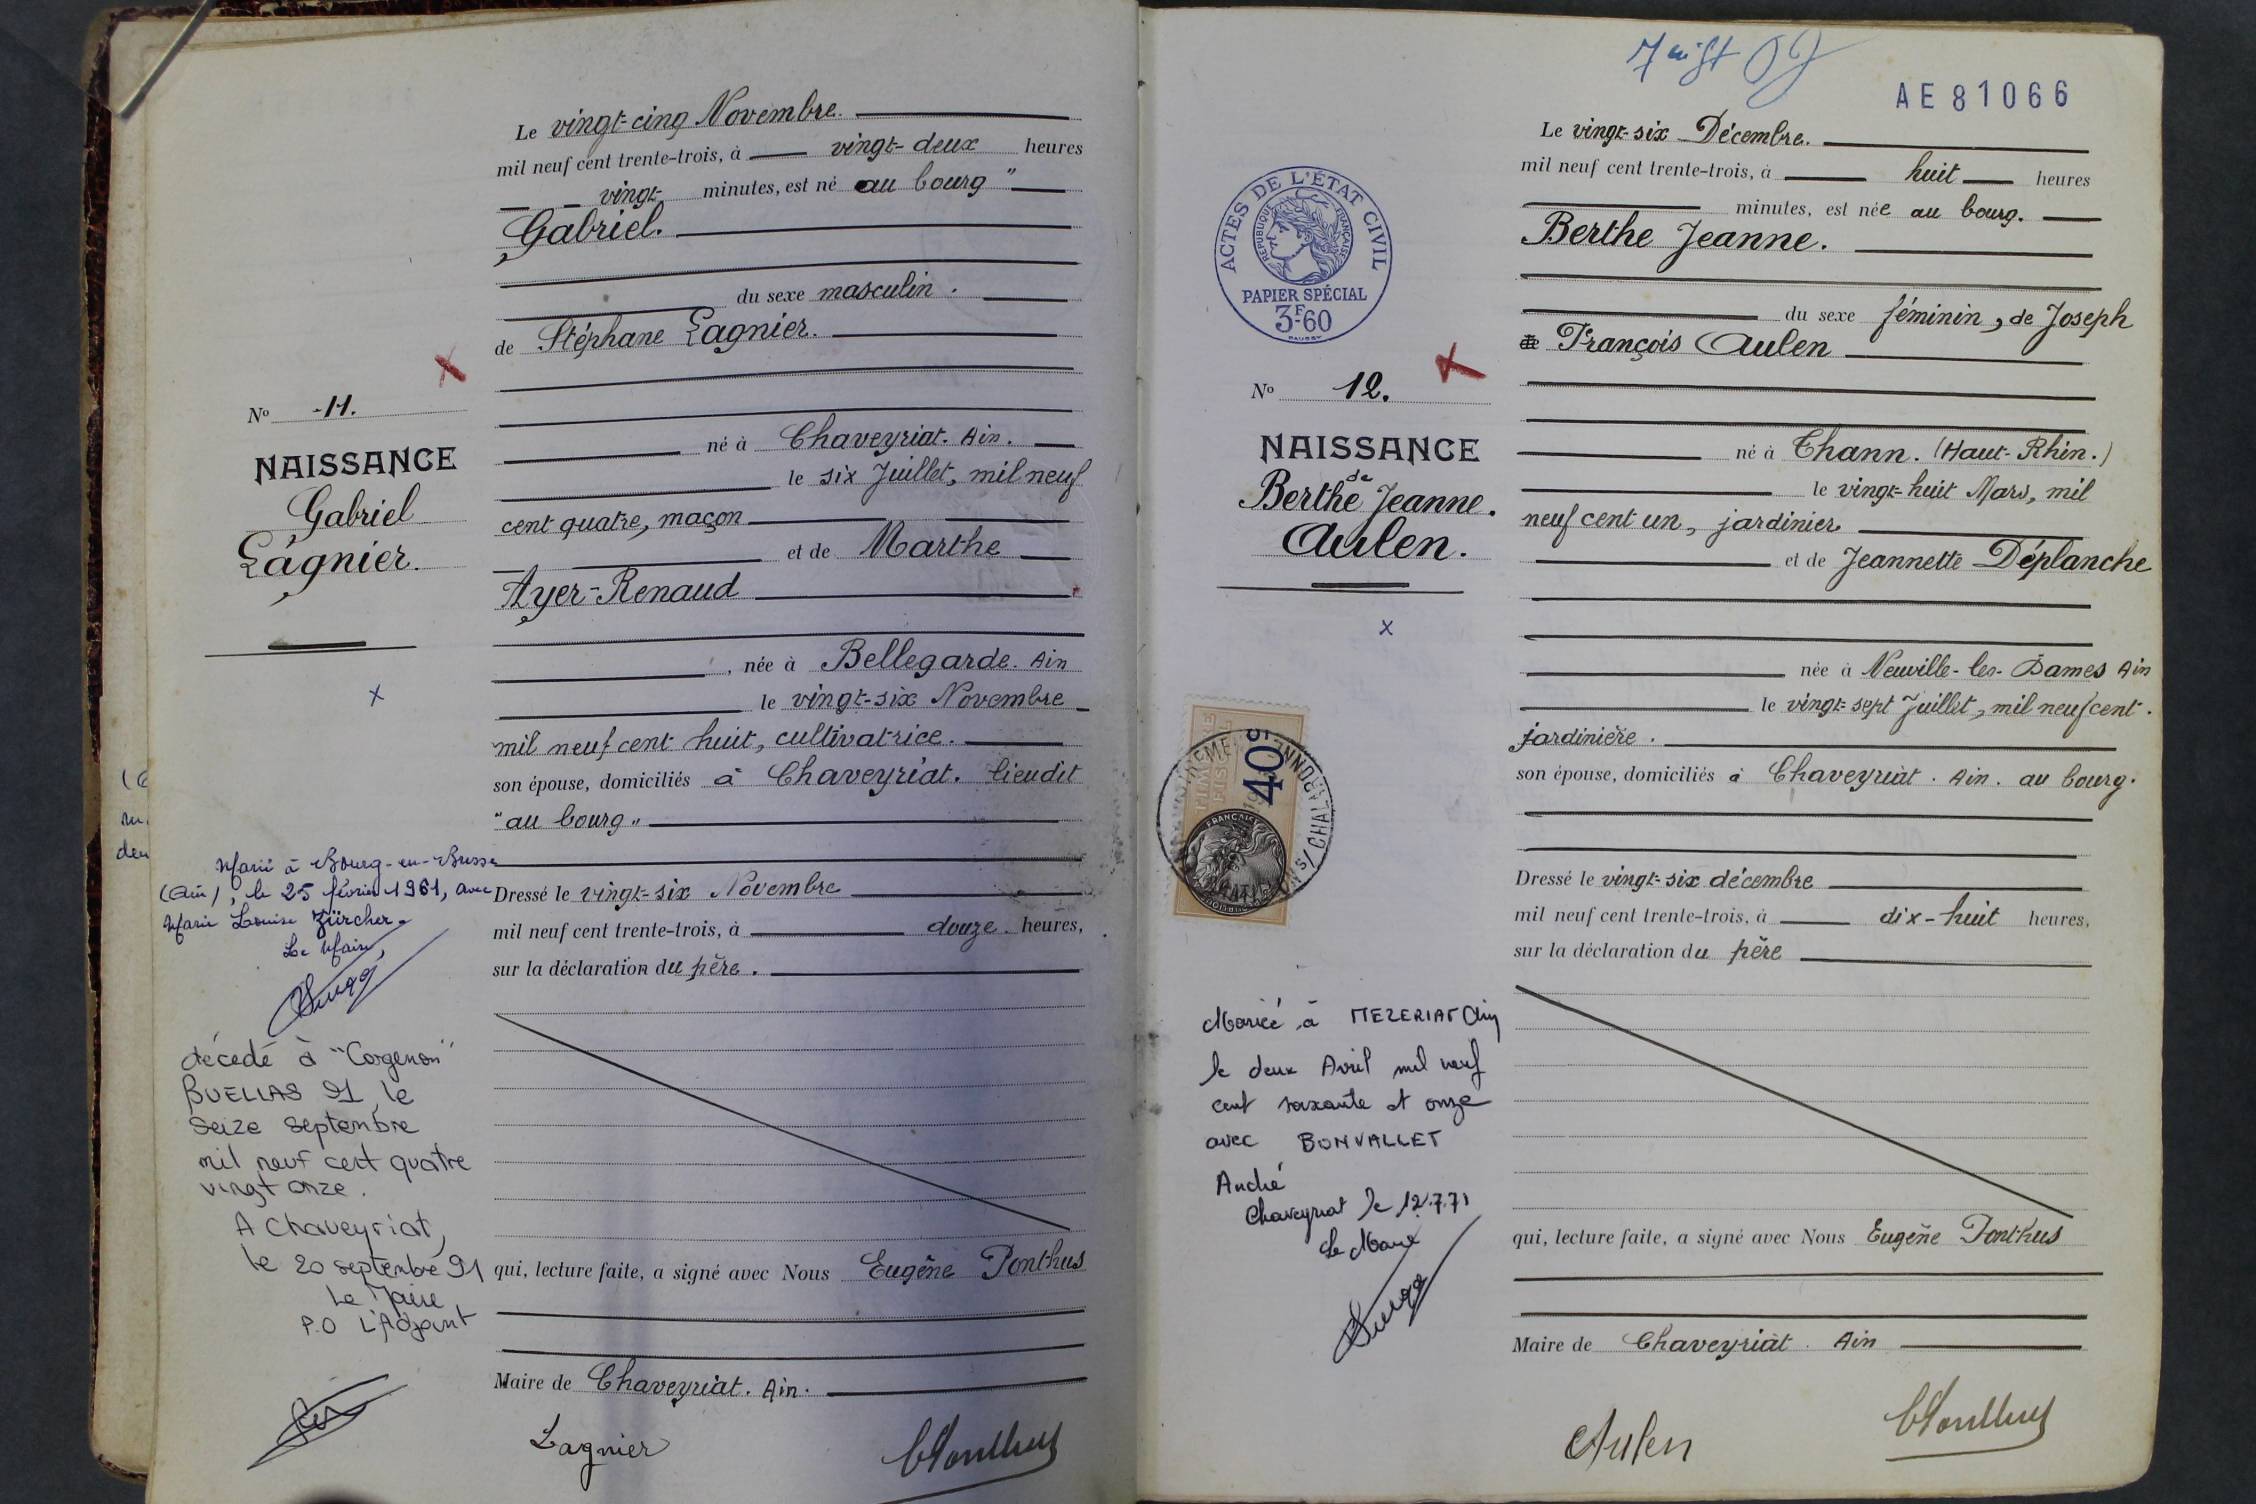 Le vingt-cinq Novembre.
mil neuf cent trente-trois, à vingt-deux heures
vingt minutes, est né au bourg "
Gabriel.
du sexe masculin.
de Stéphane Lagnier.
né à Chaveyriat. Ain.
le six Juillet, mil neuf
cent quatre, maçon
et de Marthe
Ayer-Renaud
, née à Bellegarde. Ain
le vingt-six Novembre
mil neuf cent huit, cultivatrice.
son épouse, domiciliés à Chaveyriat. lieudit
"au bourg"
Dressé le vingt-six Novembre
mil neuf cent trente-trois, à douze heures,
sur la déclaration du père.
qui, lecture faite, a signé avec Nous Eugène Ponthus
Maire de Chaveyriat. Ain.
Lagnier
No 11.
NAISSANCE
Gabriel
Lagnier.
x
Marié à Bourg-en-Bresse
(Ain), le 25 février 1961, avec
Marie Louise Zürcher.
Le Maire,
décédé à "Corgenon"
BUELLAS 91 le
seize septembre
mil neuf cent quatre
vingt onze.
A Chaveyriat,
le 20 septembre 91
Le Maire
P.O L'Adjoint
AE 81066
ACTES DE L'ÉTAT CIVIL
RÉPUBLIQUE FRANÇAISE
PAPIER SPÉCIAL
3F-60
No 12.
NAISSANCE
de
Berthe Jeanne.
Aulen.
x
40
FRANÇAISE
Mariée à MEZERIAT Ain
le deux Avril mil neuf
cent soixante et onze
avec BONVALLET
André
Chaveyriat le 12.7.71
Le Maire
Le vingt-six Décembre.
mil neuf cent trente-trois, à huit heures
minutes, est née au bourg.
Berthe Jeanne.
du sexe féminin, de Joseph
de François Aulen
né à Thann. (Haut-Rhin.)
le vingt-huit Mars, mil
neuf cent un, jardinier
et de Jeannette Déplanche
née à Neuville-les-Dames Ain
le vingt-sept Juillet, mil neuf cent.
jardinière.
son épouse, domiciliés à Chaveyriat. Ain. au bourg.
Dressé le vingt-six décembre
mil neuf cent trente-trois, à dix-huit heures,
sur la déclaration du père
qui, lecture faite, a signé avec Nous Eugène Ponthus
Maire de Chaveyriat. Ain
Aulen